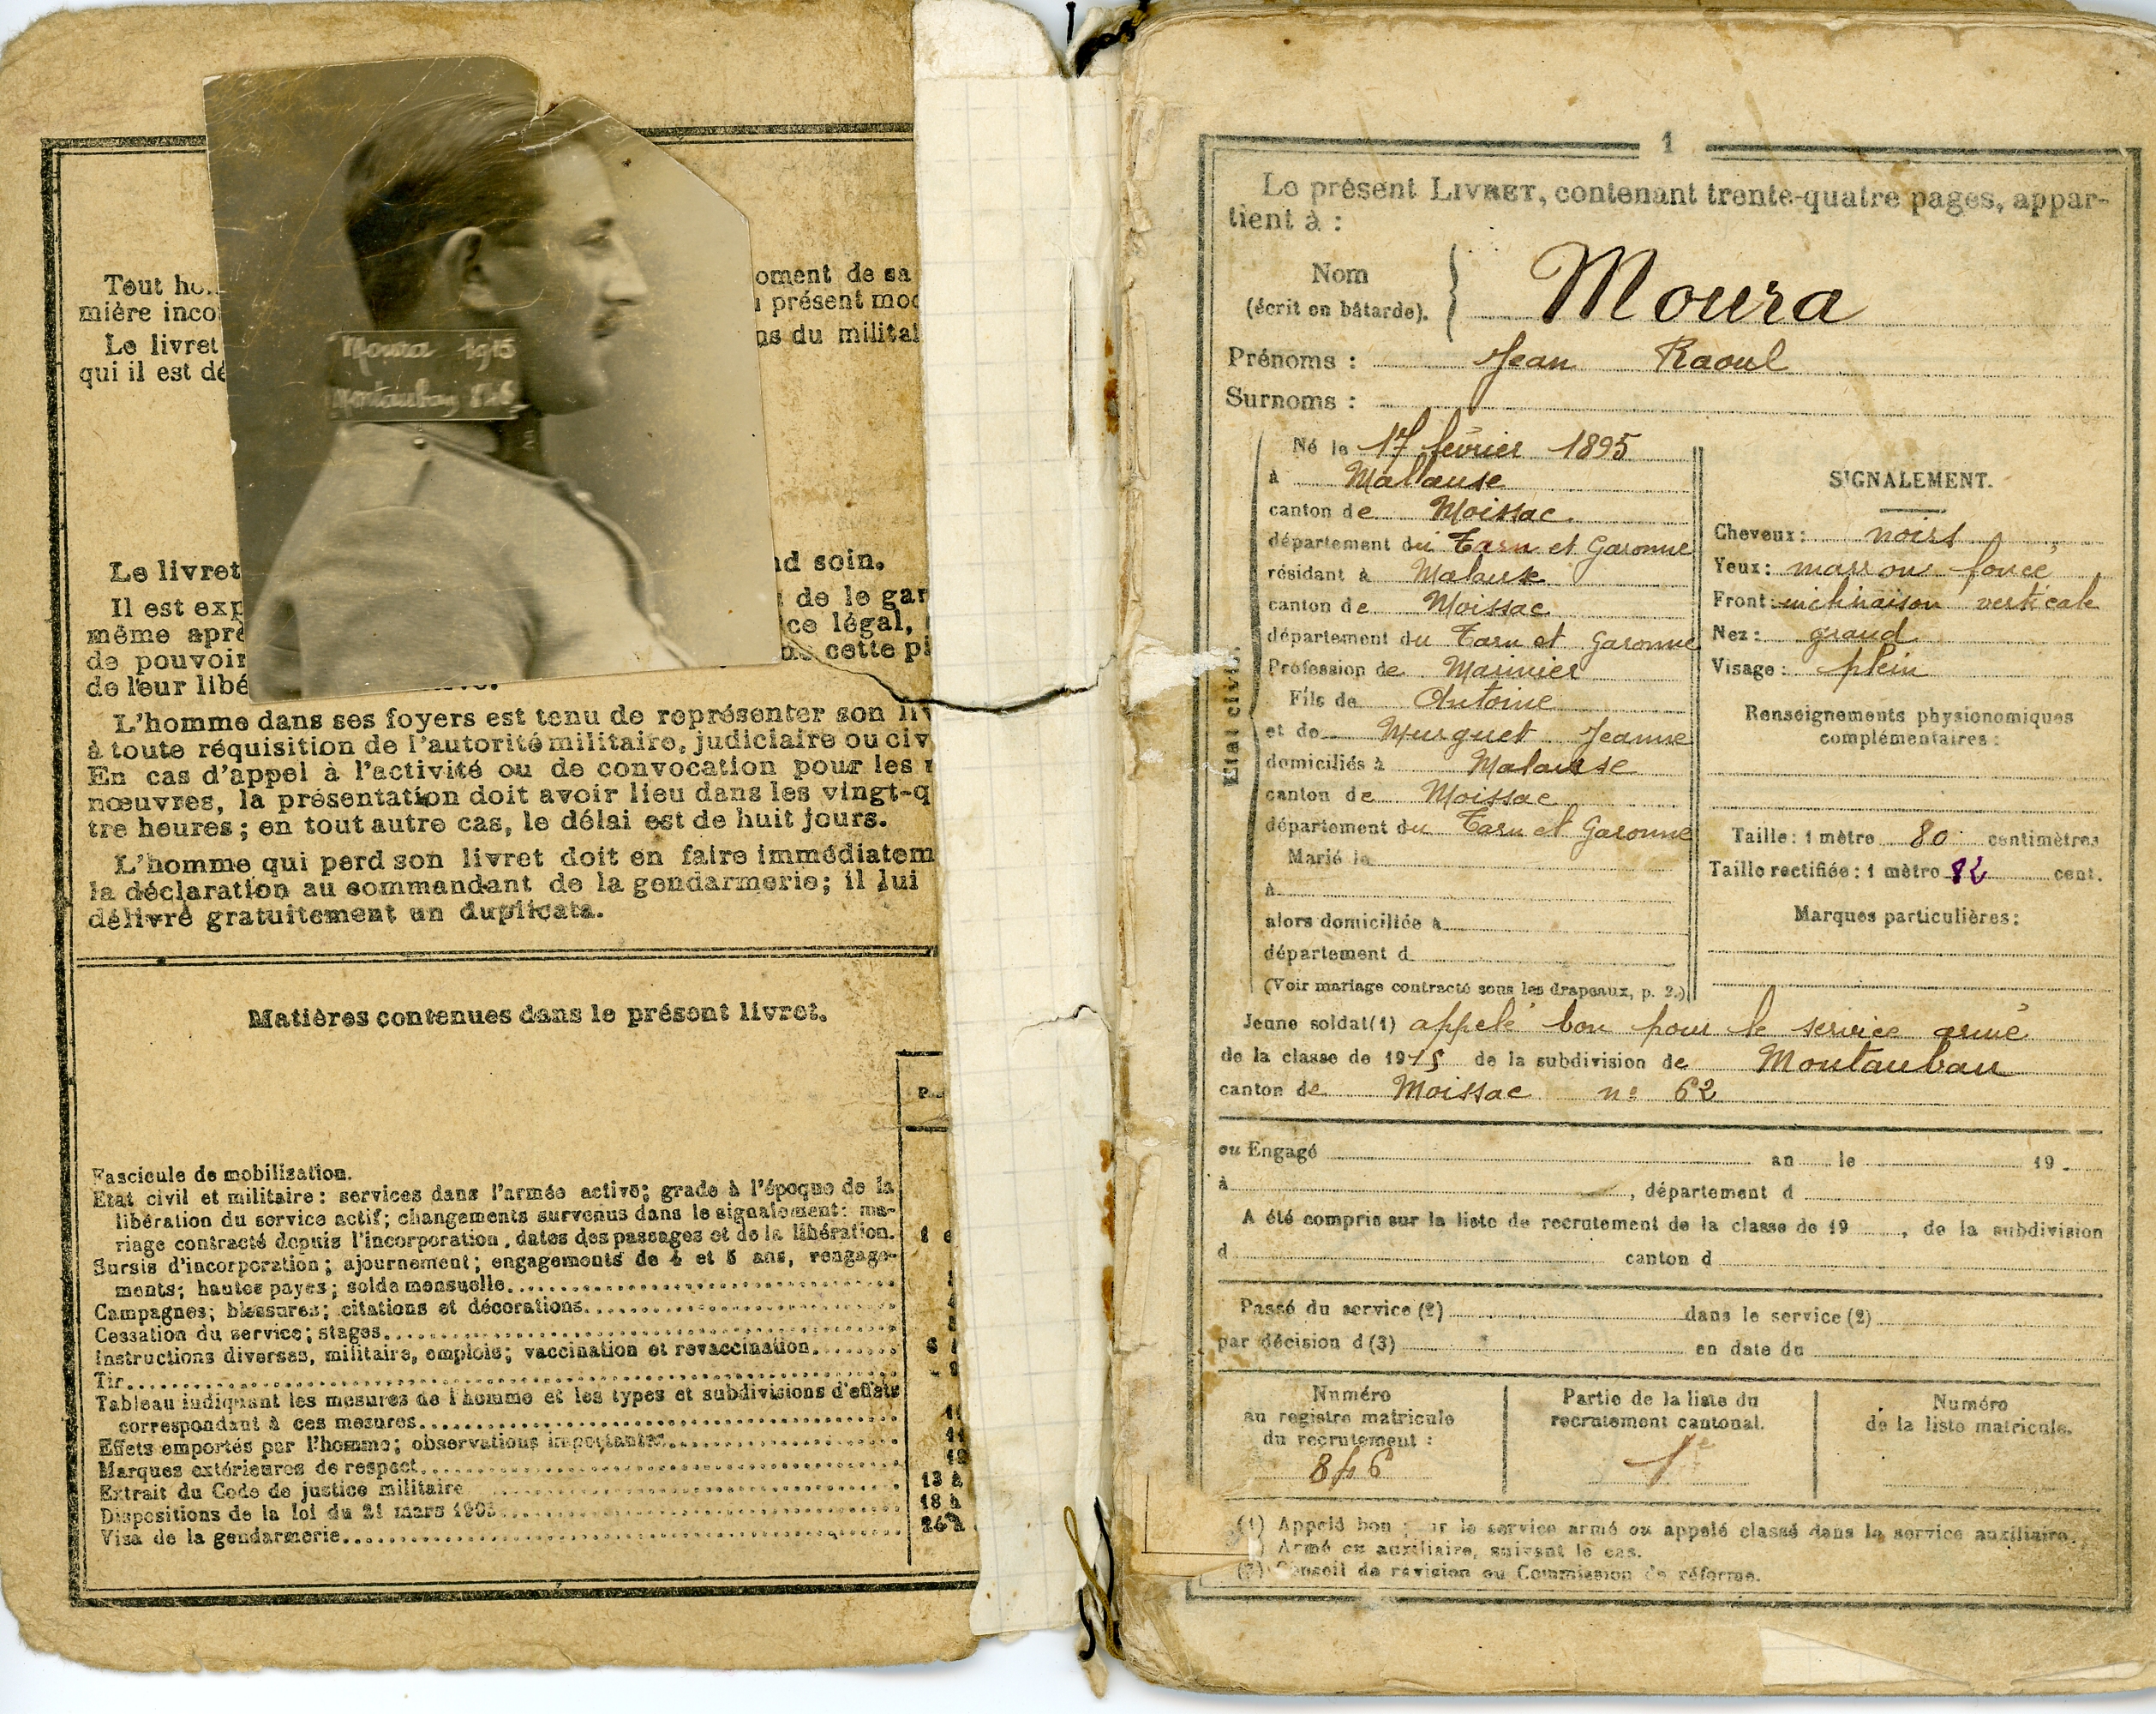 Tout ho
mière inco
Le livret
qui il est dé
oment de sa
présent mod
ns du militai
Moura 1915
Montauban 846
Le livret
nd soin.
Il est exp
de le gar
même aprè
ce légal,
de pouvoir
cette pi
de leur libé
L'homme dans ses foyers est tenu de représenter son liv
à toute réquisition de l'autorité militaire, judiciaire ou civ
En cas d'appel à l'activité ou de convocation pour les
nœuvres, la présentation doit avoir lieu dans les vingt-q
tre heures; en tout autre cas, le délai est de huit jours.
L'homme qui perd son livret doit en faire immédiatem
la déclaration au commandant de la gendarmerie; il lui
délivré gratuitement un duplicata.
Matières contenues dans le présent livret.
Fascicule de mobilisation.
Etat civil et militaire: services dans l'armée active; grade à l'époque de la
libération du service actif; changements survenus dans le signalement: ma-
riage contracté depuis l'incorporation, dates des passages et de la libération. 1
Sursis d'incorporation; ajournement; engagements de 4 et 5 ans, rengage-
ments; hautes payes; solde mensuelle
Campagnes; blessures; citations et décorations
Cessation du service; stages
Instructions diverses, militaire, emplois; vaccination et revaccination 6
Tir
Tableau indiquant les mesures de l'homme et les types et subdivisions d'effets
correspondant à ces mesures
Effets emportés par l'homme; observations importantes 11
Marques extérieures de respect 12
Extrait du Code de justice militaire 13 à
Dispositions de la loi du 21 mars 1905 18 à
Visa de la gendarmerie
1
Le présent LIVRET, contenant trente-quatre pages, appar-
tient à :
Nom
(écrit en bâtarde). Moura
Prénoms : Jean Raoul
Surnoms :
Etat civil.
Né le 17 février 1895
à Mallause
canton de Moissac
département du Tarn et Garonne
résidant à Malause
canton de Moissac
département du Tarn et Garonne
Profession de Marinier
Fils de Antoine
et de Murguet Jeanne
domiciliés à Malause
canton de Moissac
département du Tarn et Garonne
Marié le
à
alors domiciliée à
département d
(Voir mariage contracté sous les drapeaux, p. 2.)
SIGNALEMENT.
Cheveux: noirs
Yeux: marron foncé
Front: inclinaison verticale
Nez: grand
Visage: plein
Renseignements physionomiques
complémentaires:
Taille: 1 mètre 80 centimètres
Taille rectifiée: 1 mètro 82 cent.
Marques particulières:
Jeune soldat(1) appelé bon pour le service armé
de la classe de 1915 de la subdivision de Montauban
canton de Moissac n° 62
ou Engagé an le 19
à , département d
A été compris sur la liste de recrutement de la classe de 19 , de la subdivision
d canton d
Passé du service (2) dans le service (2)
par décision d (3) en date du
Numéro
au registre matricule
du recrutement:
846
Partie de la liste du
recrutement cantonal.
1e
Numéro
de la liste matricule.
(1) Appelé bon pour le service armé ou appelé classé dans le service auxiliaire.
) Armé ou auxiliaire, suivant le cas.
(3) Conseil de revision ou Commission de réforme.